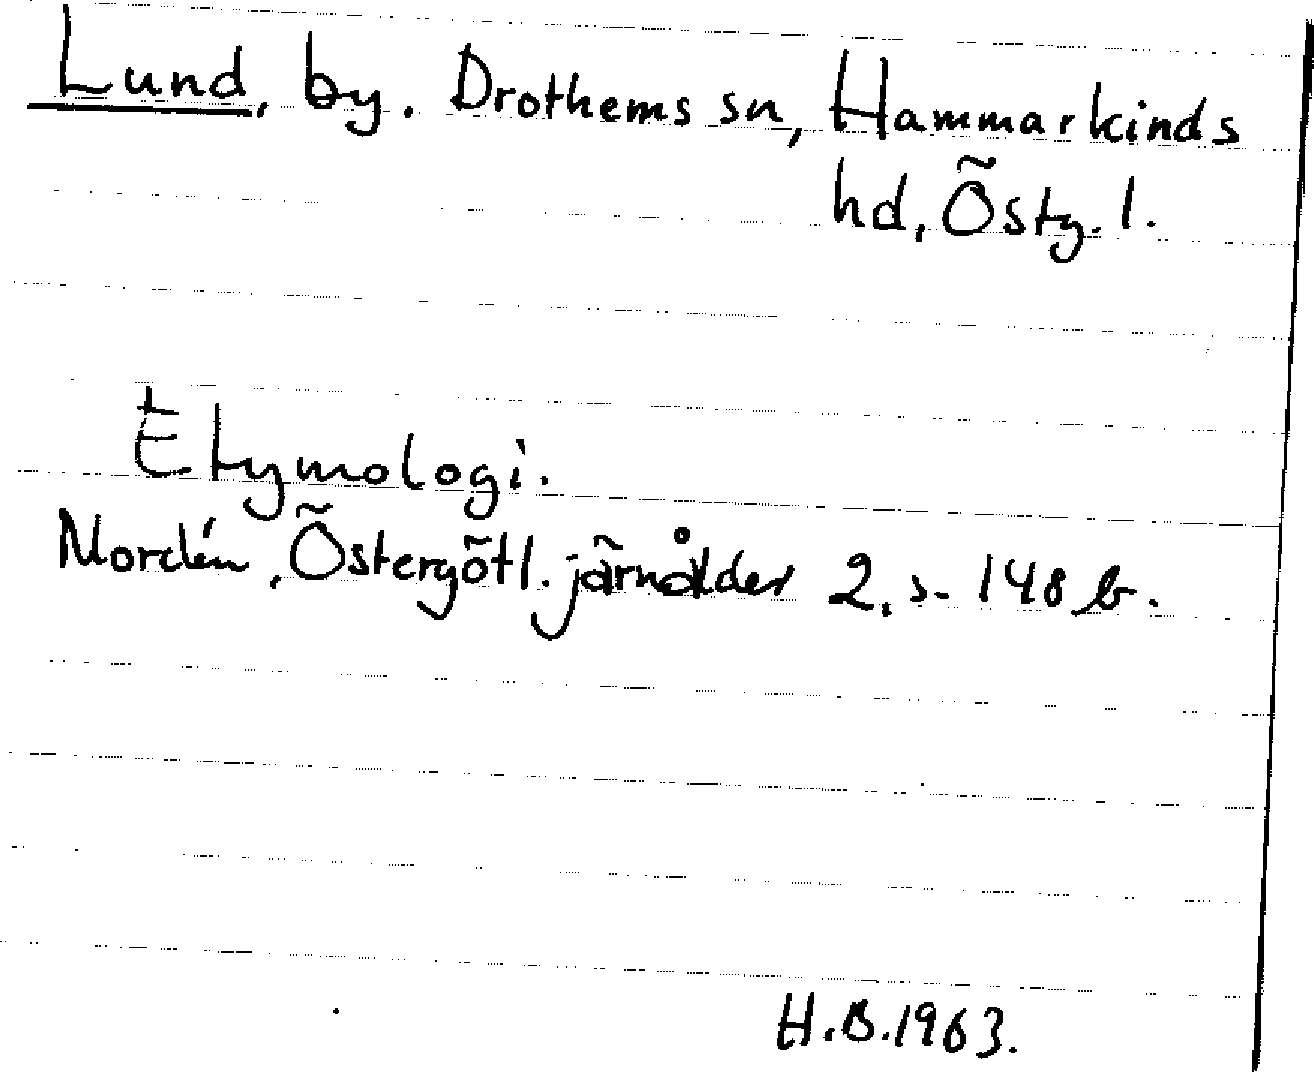 Lund, by. Drothems sn, Hammarkinds
hd, Östg. l.
Etymologi.
Nordén, Östergötl. järnålder 2, s. 148 b.
H.B.1963.